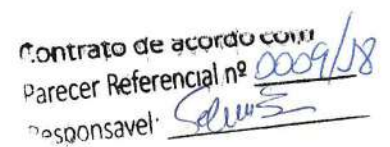 Contrato de acordo com
Parecer Referencial nº 0009/18
Responsavel: